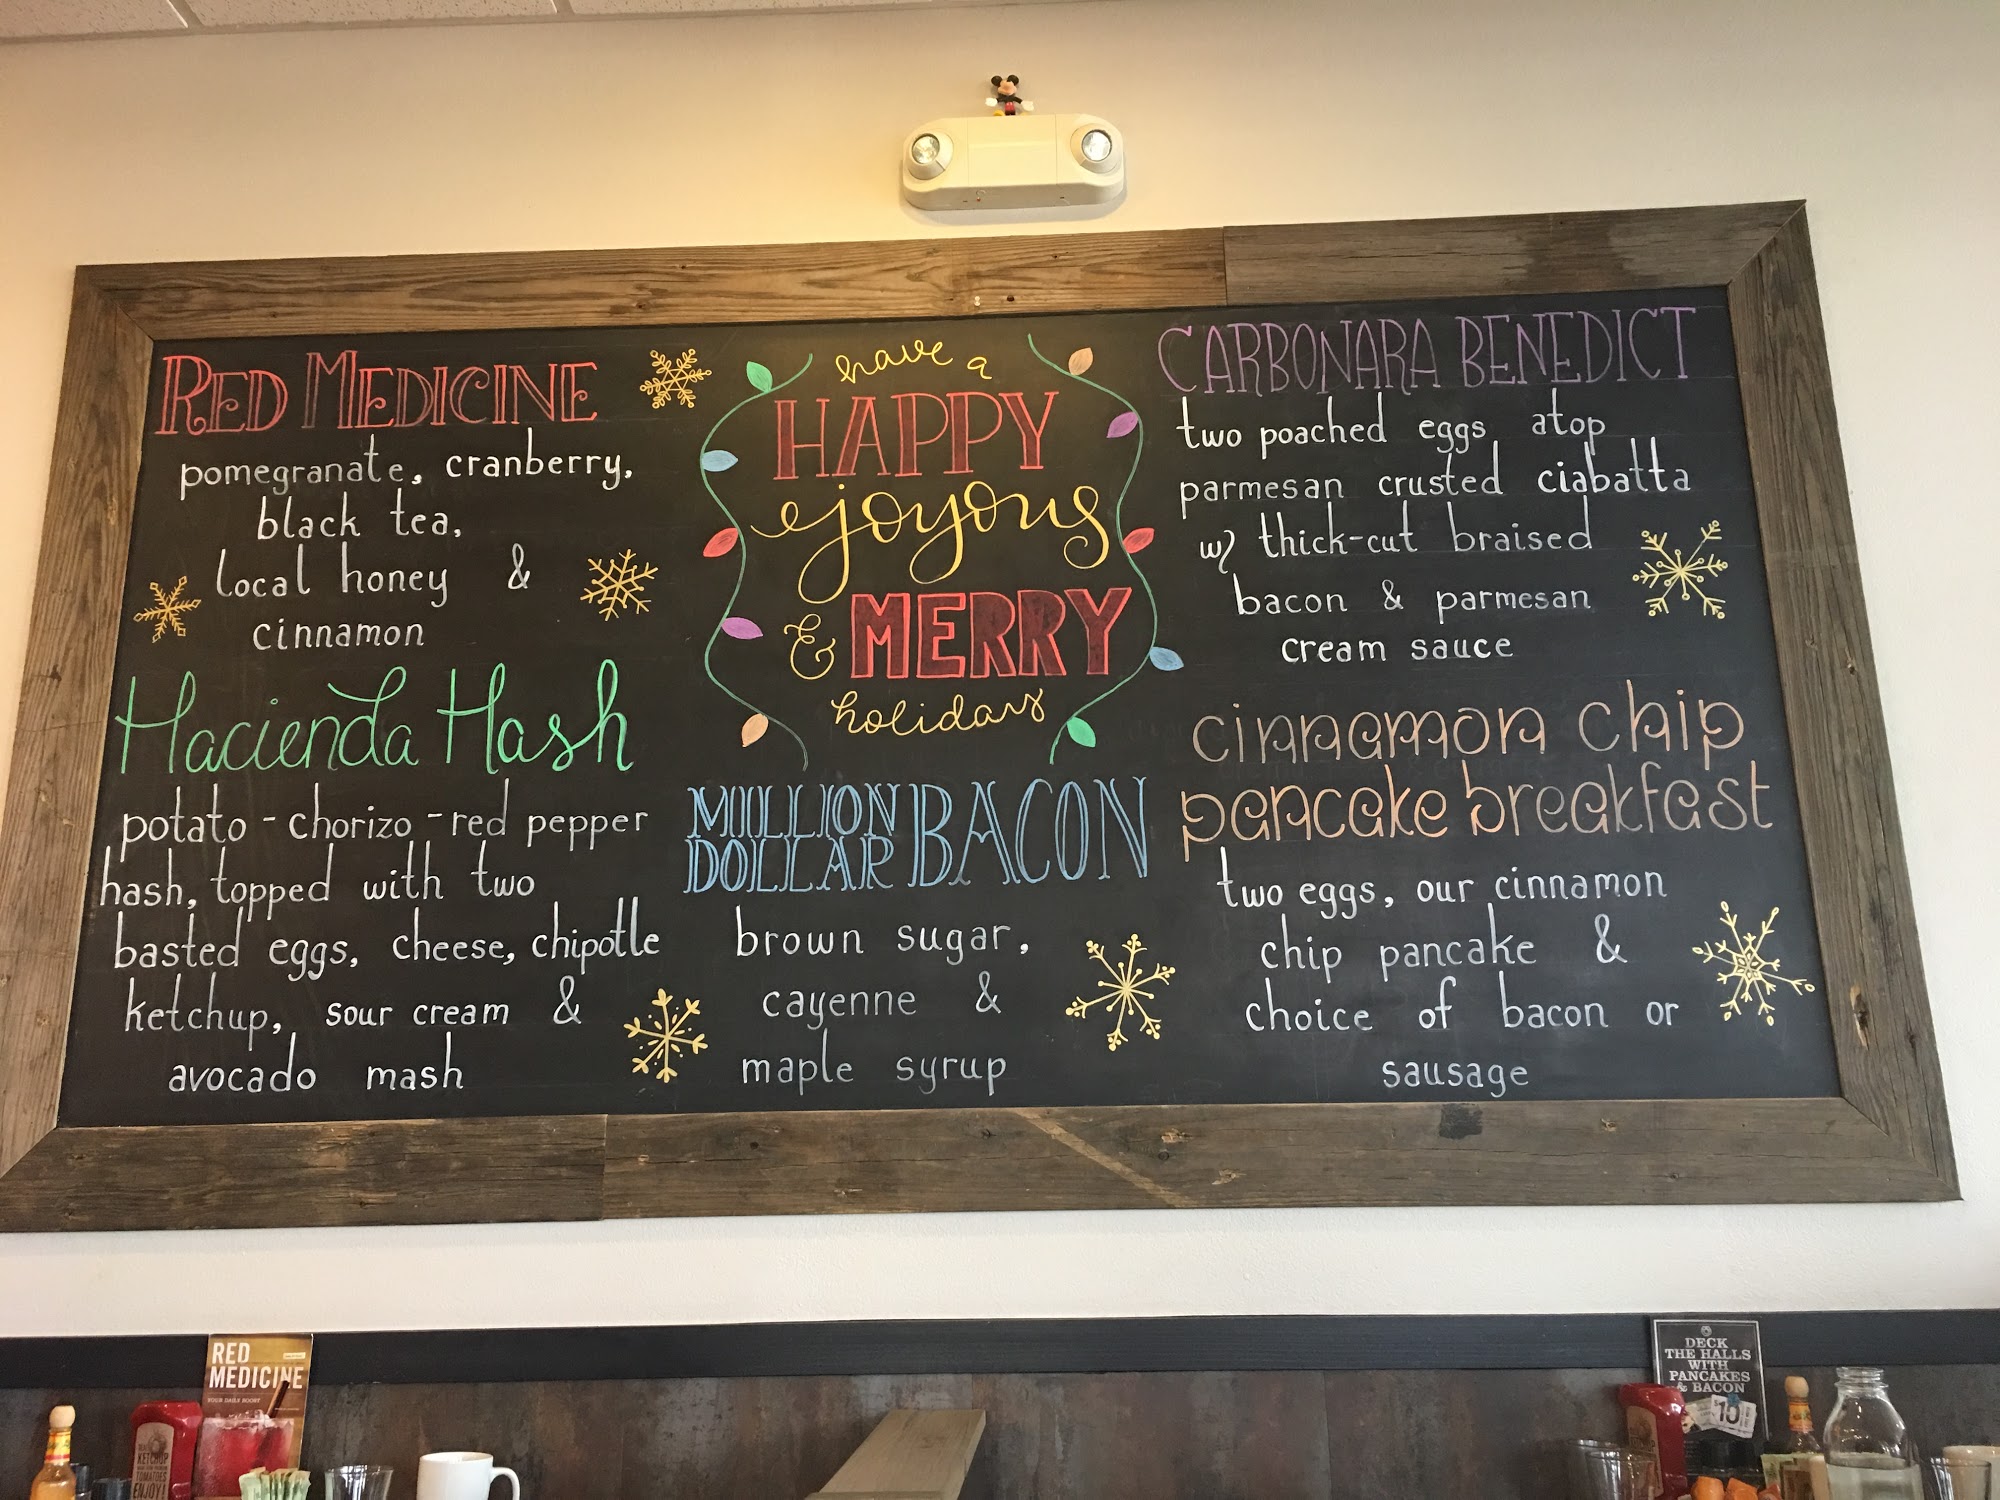 RED MEDICINE
pomegranate, cranberry,
black tea,
local honey &
cinnamon
Hacienda Hash
potato - chorizo - red pepper
hash, topped with two
basted eggs, cheese, chipotle
ketchup, sour cream &
avocado mash
have a
HAPPY
joyous
& MERRY
holidays
MILLION
DOLLAR BACON
brown sugar,
cayenne &
maple syrup
CARBONARA BENEDICT
two poached eggs atop
parmesan crusted ciabatta
w/ thick-cut braised
bacon & parmesan
cream sauce
cinnamon chip
pancake breakfast
two eggs, our cinnamon
chip pancake &
choice of bacon or
sausage
RED
MEDICINE
YOUR DAILY BOOST
KETCHUP
TOMATOES
ENJOY!
DECK
THE HALLS
WITH
PANCAKES
& BACON
10